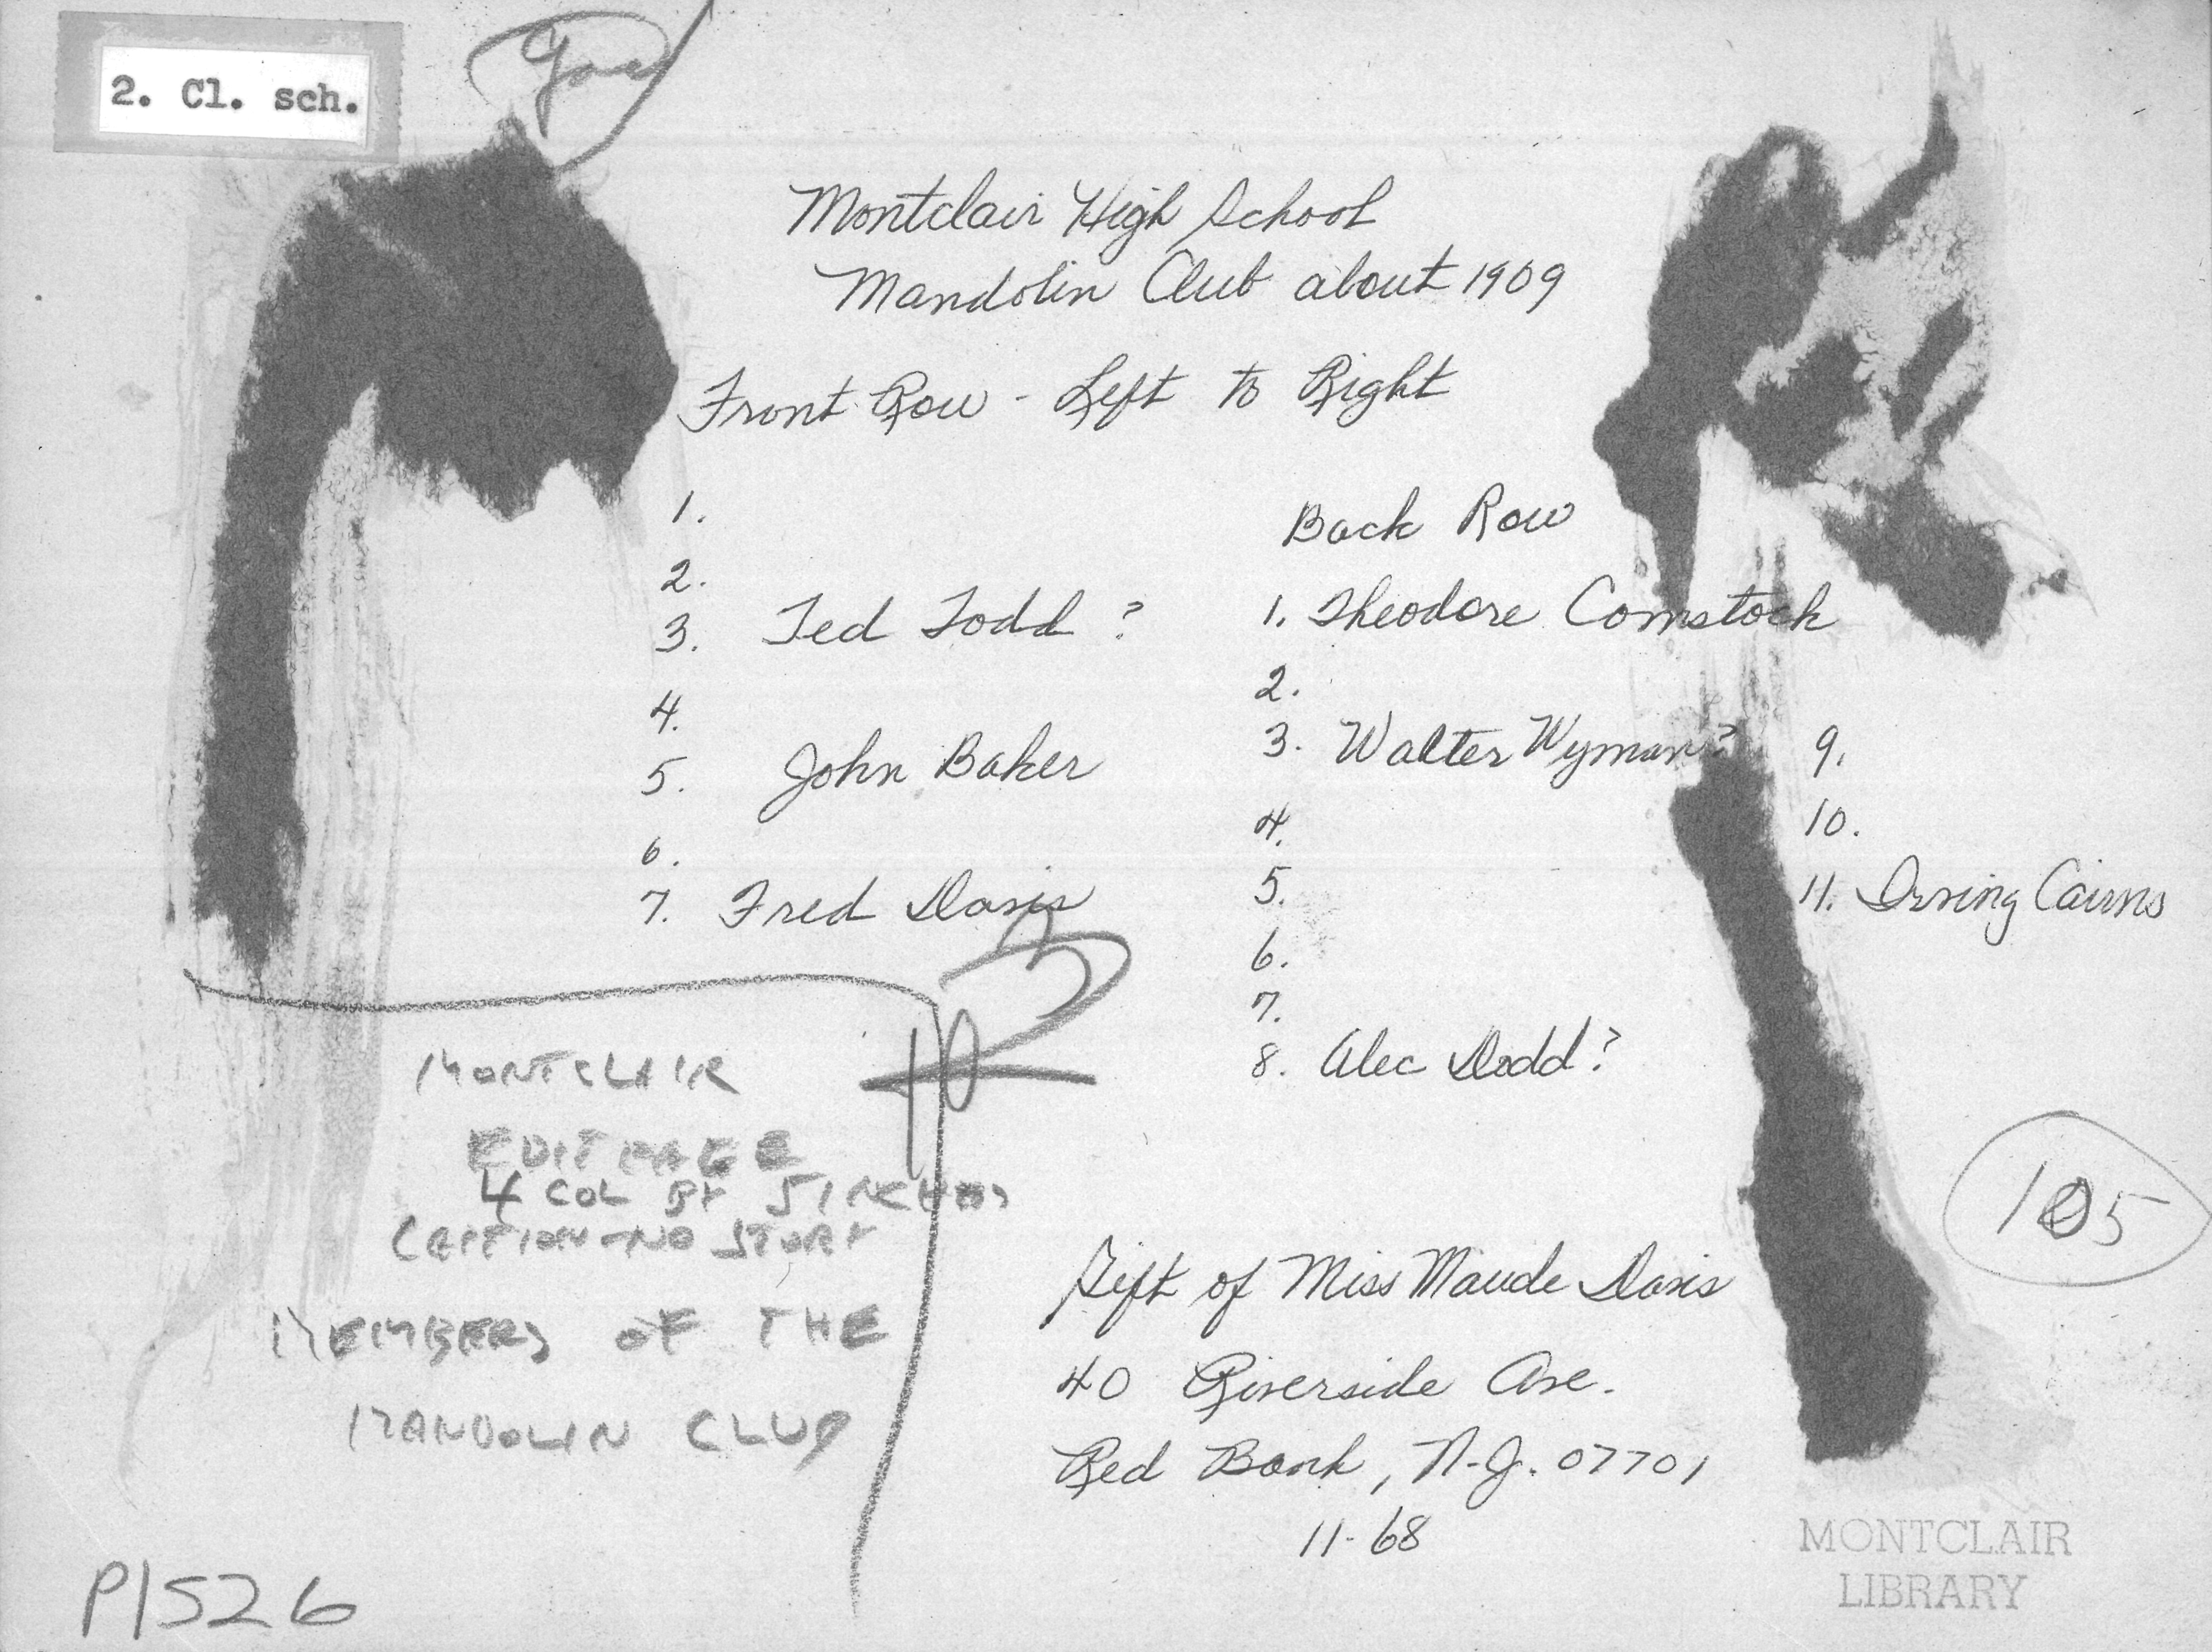 2. Cl. sch.
Montclair High School
Mandolin Club about 1909
Front Row - Left to Right
1.
2.
3. Ted Todd ?
4.
5. John Baker
6.
7. Fred Davis
Back Row
1. Theodore Comstock
2.
3. Walter Wyman?
4.
5.
6.
7.
8. Alec Dodd?
9.
10.
11. Irving Cairns
10
MONTCLAIR
EDIT PAGE
4 COL BY 5 INCHES
CAPTION-NO STORY
MEMBERS OF THE
MANDOLIN CLUB
105
Gift of Miss Maude Davis
40 Riverside Ave.
Red Bank, N.J. 07701
11-68
P1526
MONTCLAIR
LIBRARY